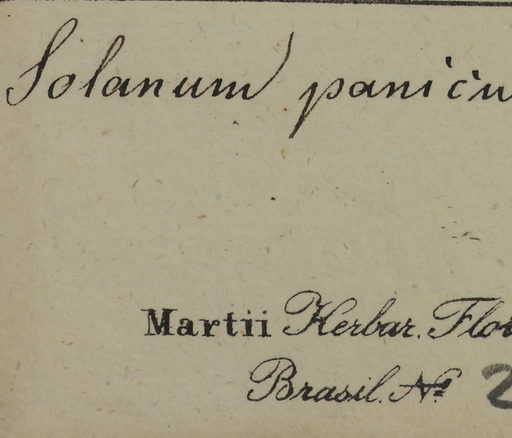 Solanum panicu
Martii Herbar. Flor
Brasil. No. 2